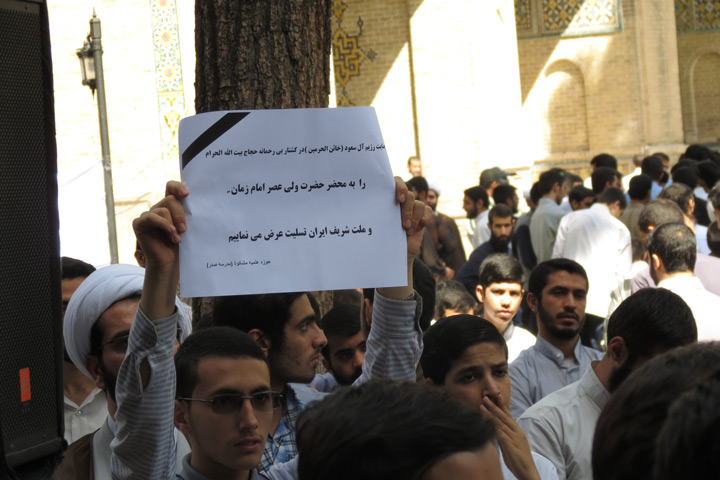 نایت رژیم آل سعود (خائن الحرمین )در کشتار بی رحمانه حجاج بیت الله الحرام
را به محضر حضرت ولی عصر امام زمان
و ملت شریف ایران تسلیت عرض می نماییم
حوزه علمیه مشکوة (مدرسه صدر)